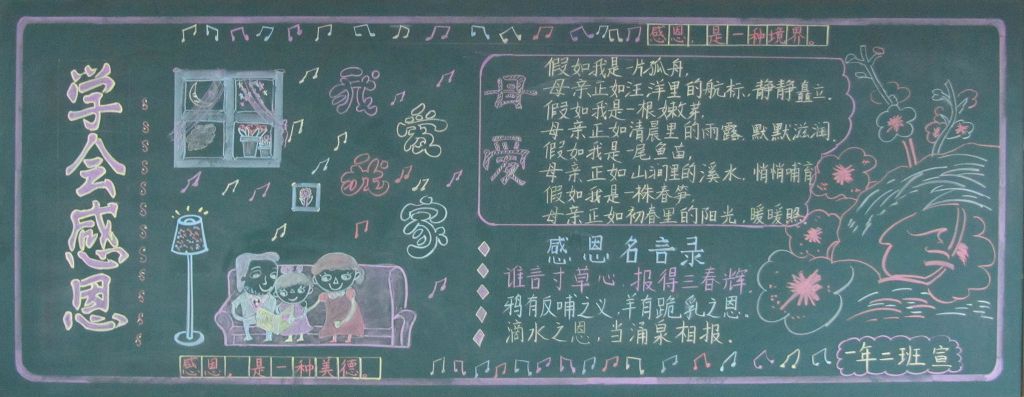 学会感恩
感恩，是一种境界。
我爱我家
感恩，是一种美德。
母爱
假如我是一片孤舟，
母亲正如汪洋里的航标，静静矗立.
假如我是一根嫩芽，
母亲正如清晨里的雨露，默默滋润.
假如我是一尾鱼苗
母亲正如山涧里的溪水，悄悄哺育
假如我是一株春笋，
母亲正如初春里的阳光，暖暖照
感恩名言录
谁言寸草心，报得三春辉.
鸦有反哺之义，羊有跪乳之恩.
滴水之恩，当涌泉相报.
一年二班宣